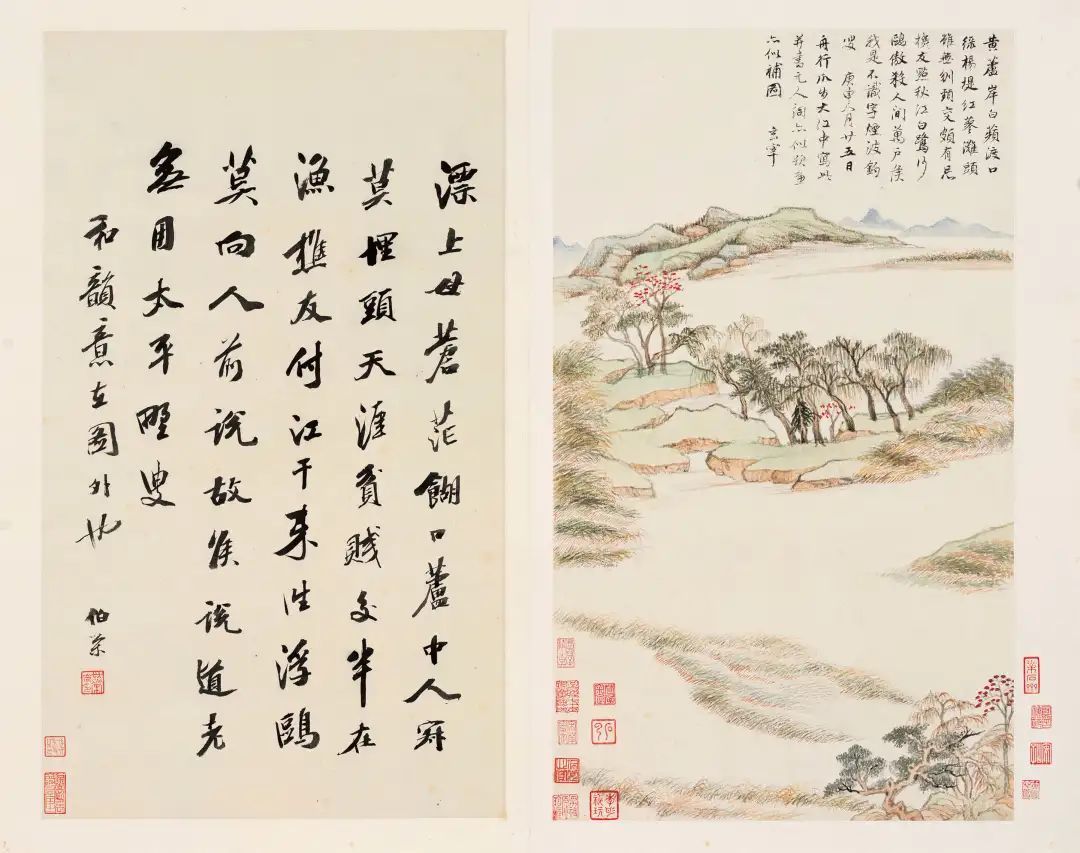 黄蘆岸白蘋渡口
綠楊堤紅蓼灘頭
雖無刎頸交頗有忘
機友點秋江白鷺沙
鷗傲殺人間萬戶侯
我是不識字煙波釣
叟 庚申八月廿五日
舟行爪步大江中寫此
并書元人詞
補圖
漂上母蒼茫餬口蘆中人
莫埋頭天涯貧賤交半在
漁樵友付江干來往浮鷗
莫向人前說故侯說道老
無用太平野叟
和韻意在圖外也
伯